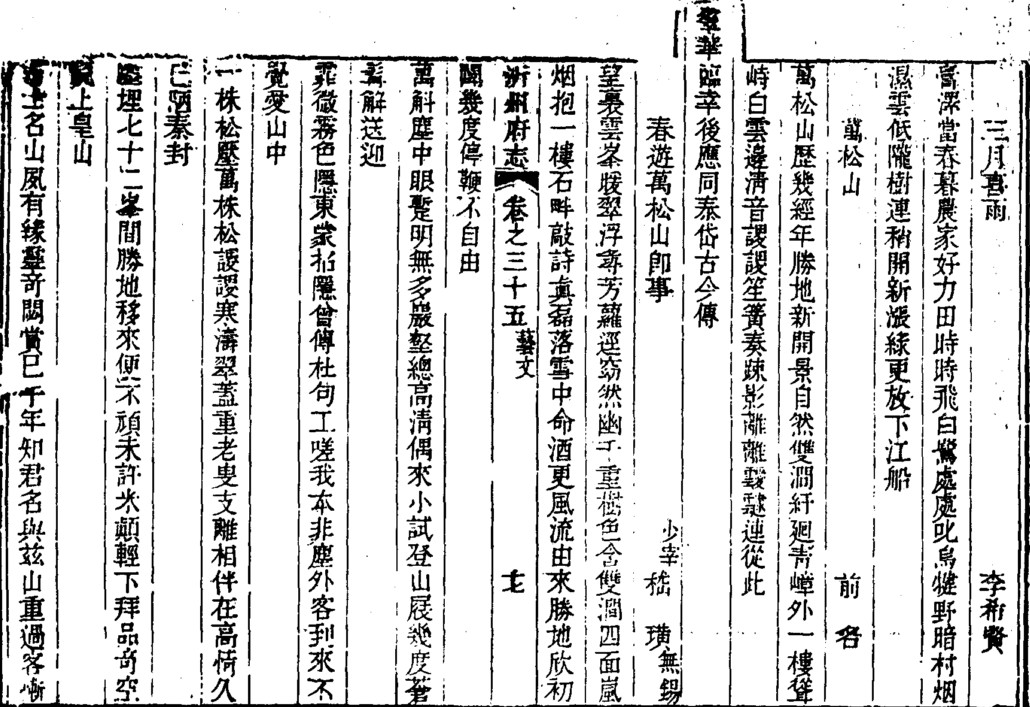 三月喜雨　李希賢
當澤當春暮農家好力田時時飛白鷺處處叱烏犍野暗村烟
濕雲低隴樹連稍開新漲綠更放下江船
萬松山　前名
萬松山歷幾經年勝地新開景自然雙澗紆廻青嶂外一樓聳
峙白雲邊清音謖謖笙簧奏踈影離離靉靆連從此
翠華
臨幸後應同泰岱古今傳
春遊萬松山卽事　少宰嵇　璜無錫
望裏雲峯暖翠浮尋芳蘿逕窈然幽千重樹色含雙澗四面嵐
烟抱一樓石畔敲詩眞磊落雪中命酒更風流由來勝地欣初
沂州府志　卷之三十五　藝文　七
闢幾度停鞭不自由
萬斛塵中眼蹔明無多巖壑總高淸偶來小試登山屐幾度蒼
髯解送迎
霏微霧色隱東蒙招隱曾傳杜句工嗟我本非塵外客到來不
覺愛山中
一株松壓萬株松謖謖寒濤翠蓋重老叟支離相伴在高情久
已陋秦封
埋七十二峯間勝地移來便不頑未許米顚輕下拜品奇空
上皇山
名山夙有緣靈奇閟賞已千年知君名與兹山重過客漸